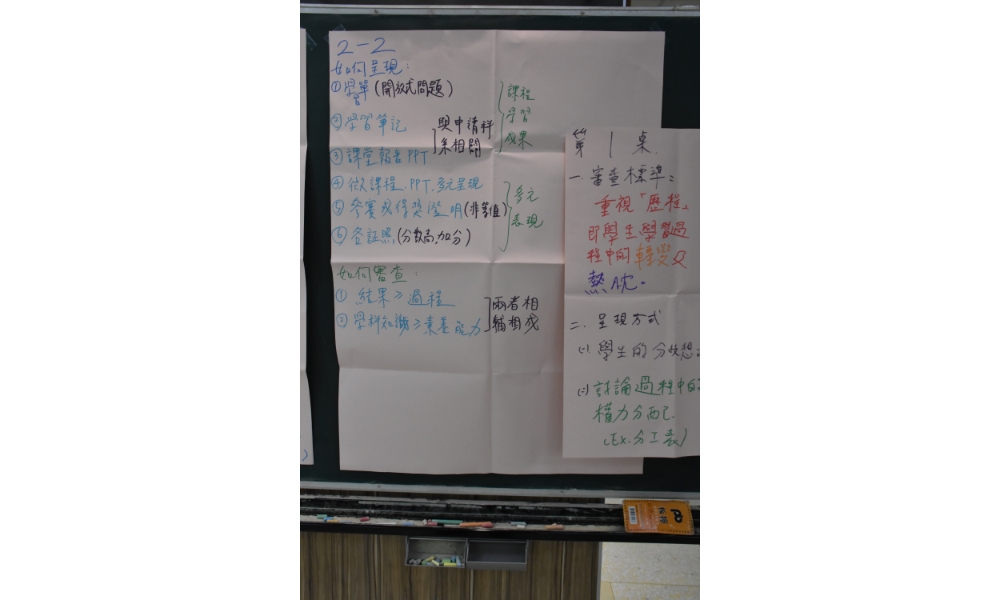 2-2
如何呈現:
①學習單(開放式問題)
②學習筆記
與申請科
系相關
③課堂報告PPT
課程
學習
成果
④微課程.PPT.多元呈現
⑤參賽或得獎證明(非等值)
⑥簽証照(分數高,加分)
多元
表現
如何審查:
① 結果≥過程
② 學科知識≥素養能力
兩者相
輔相成
第 1 桌.
一.審查標準:
重視「歷程」
即學生學習過
程中的轉變及
熱忱。
二.呈現方式
(一)學生的
(二)討論過程中的
權力分配.
(Ex.分工表)